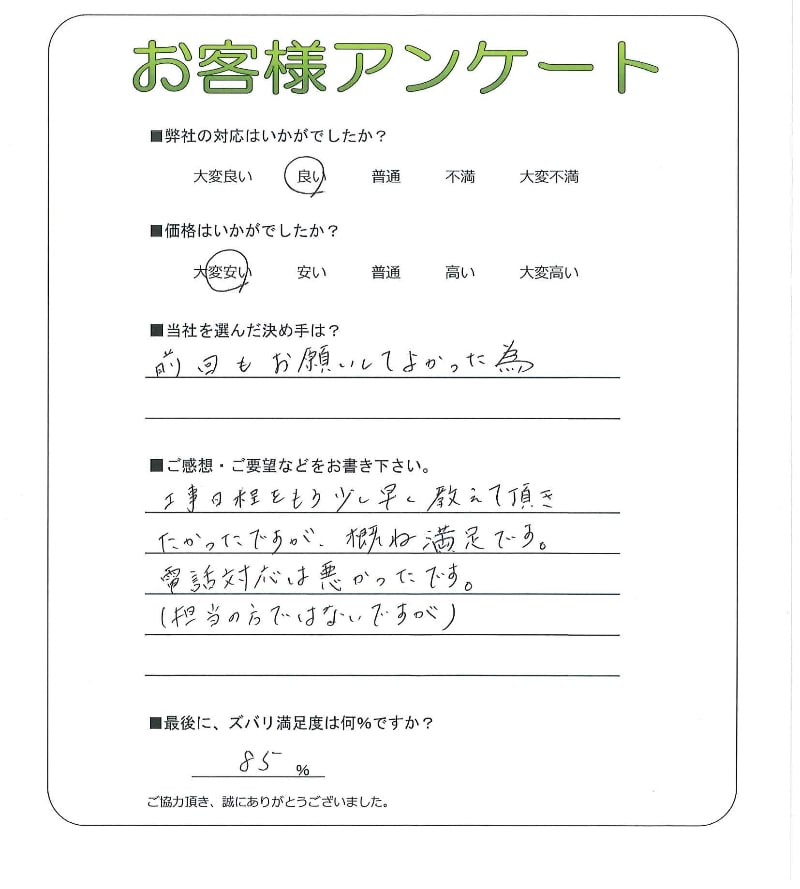 お客様アンケート
■弊社の対応はいかがでしたか？
大変良い 良い 普通 不満 大変不満
■価格はいかがでしたか？
大変安い 安い 普通 高い 大変高い
■当社を選んだ決め手は？
前回もお願いしてよかった為
■ご感想・ご要望などをお書き下さい。
工事日程をもう少し早く教えて頂き
たかったですが、概ね満足です。
電話対応は悪かったです。
(担当の方ではないですが)
■最後に、ズバリ満足度は何％ですか？
85 %
ご協力頂き、誠にありがとうございました。